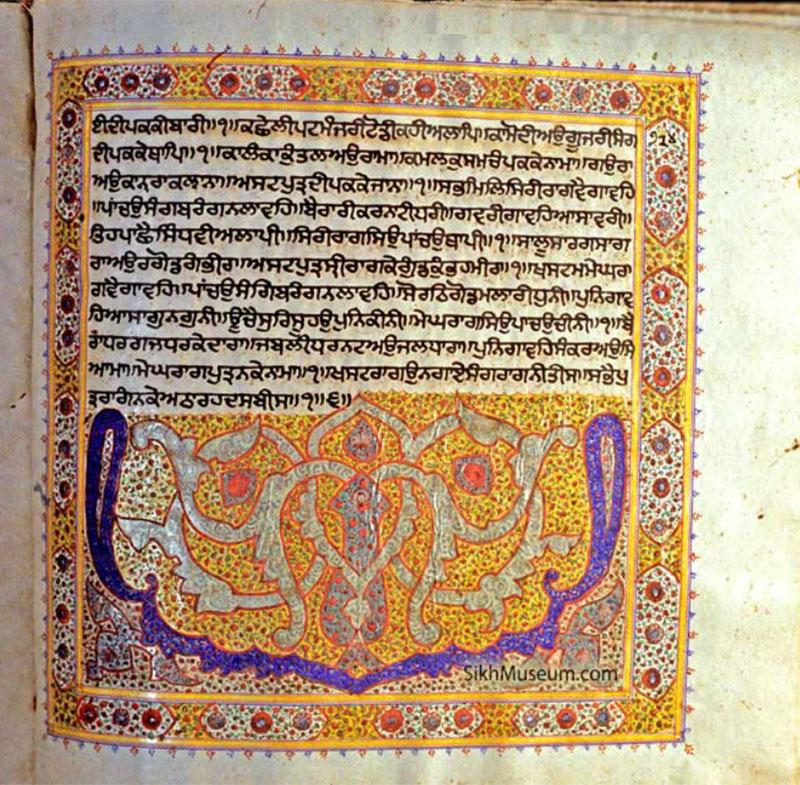 ਈਦੀਪਕਕੀਬਾਰੀ॥੧॥ਕਛੇਲੀਪਟਮੰਜਰੀਟੋਡੀਕਹੀਅਲਾਪਿ॥ਕਾਮੋਦੀਅਉਗੂਜਰੀਸੰਗਿ
ਦੀਪਕਕੇਥਾਪਿ॥੧॥ਕਾਲੰਕਾਕੁੰਤਲਅਉਰਾਮਾ॥ਕਮਲਕੁਸਮਚੰਪਕਕੇਨਾਮਾ॥ਗਉਰਾ
ਅਉਕਾਨਰਾਕਲ੍ਯਾਨਾ॥ਅਸਟਪੁਤ੍ਰਦੀਪਕਕੇਜਾਨਾ॥੧॥ਸਭਮਿਲਿਸਿਰੀਰਾਗਵੈਗਾਵਹਿ
॥ਪਾਂਚਉਸੰਗਿਬਰੰਗਨਲਾਵਹਿ॥ਬੈਰਾਰੀਕਰਨਾਟੀਧਰੀ॥ਗਵਰੀਗਾਵਹਿਆਸਾਵਰੀ॥
ਤਿਹਪਾਛੈਸਿੰਧਵੀਅਲਾਪੀ॥ਸਿਰੀਰਾਗਸਿਉਪਾਂਚਉਥਾਪੀ॥੧॥ਸਾਲੂਸਾਰਗਸਾਗ
ਰਾਅਉਰਗੋਂਡਗੰਭੀਰ॥ਅਸਟਪੁਤ੍ਰਸ੍ਰੀਰਾਗਕੇਗੁੰਡਕੁੰਭਹਮੀਰ॥੧॥ਖਸਟਮਮੇਘਰਾ
ਗਵੈਗਾਵਹਿ॥ਪਾਂਚਉਸੰਗਿਬਰੰਗਨਲਾਵਹਿ॥ਸੋਰਠਿਗੋਂਡਮਲਾਰੀਧੁਨੀ॥ਪੁਨਿਗਾਵ
ਹਿਆਸਾਗੁਨਗੁਨੀ॥ਊਚੈਸੁਰਿਸੂਹਉਪੁਨਿਕੀਨੀ॥ਮੇਘਰਾਗਸਿਉਪਾਂਚਉਚੀਨੀ॥੧॥ਬੈ
ਰਾਧਰਗਜਧਰਕੇਦਾਰਾ॥ਜਬਲੀਧਰਨਟਅਉਜਲਧਾਰਾ॥ਪੁਨਿਗਾਵਹਿਸੰਕਰਅਉਸਿ
ਆਮਾ॥ਮੇਘਰਾਗਪੁਤ੍ਰਨਕੇਨਾਮਾ॥੧॥ਖਸਟਰਾਗਉਨਿਗਾਏਸੰਗਿਰਾਗਨੀਤੀਸ॥ਸਭੈਪੁ
ਤ੍ਰਰਾਗੰਨਕੇਅਠਾਰਹਦਸਬੀਸ॥੧॥੬॥
SikhMuseum.com